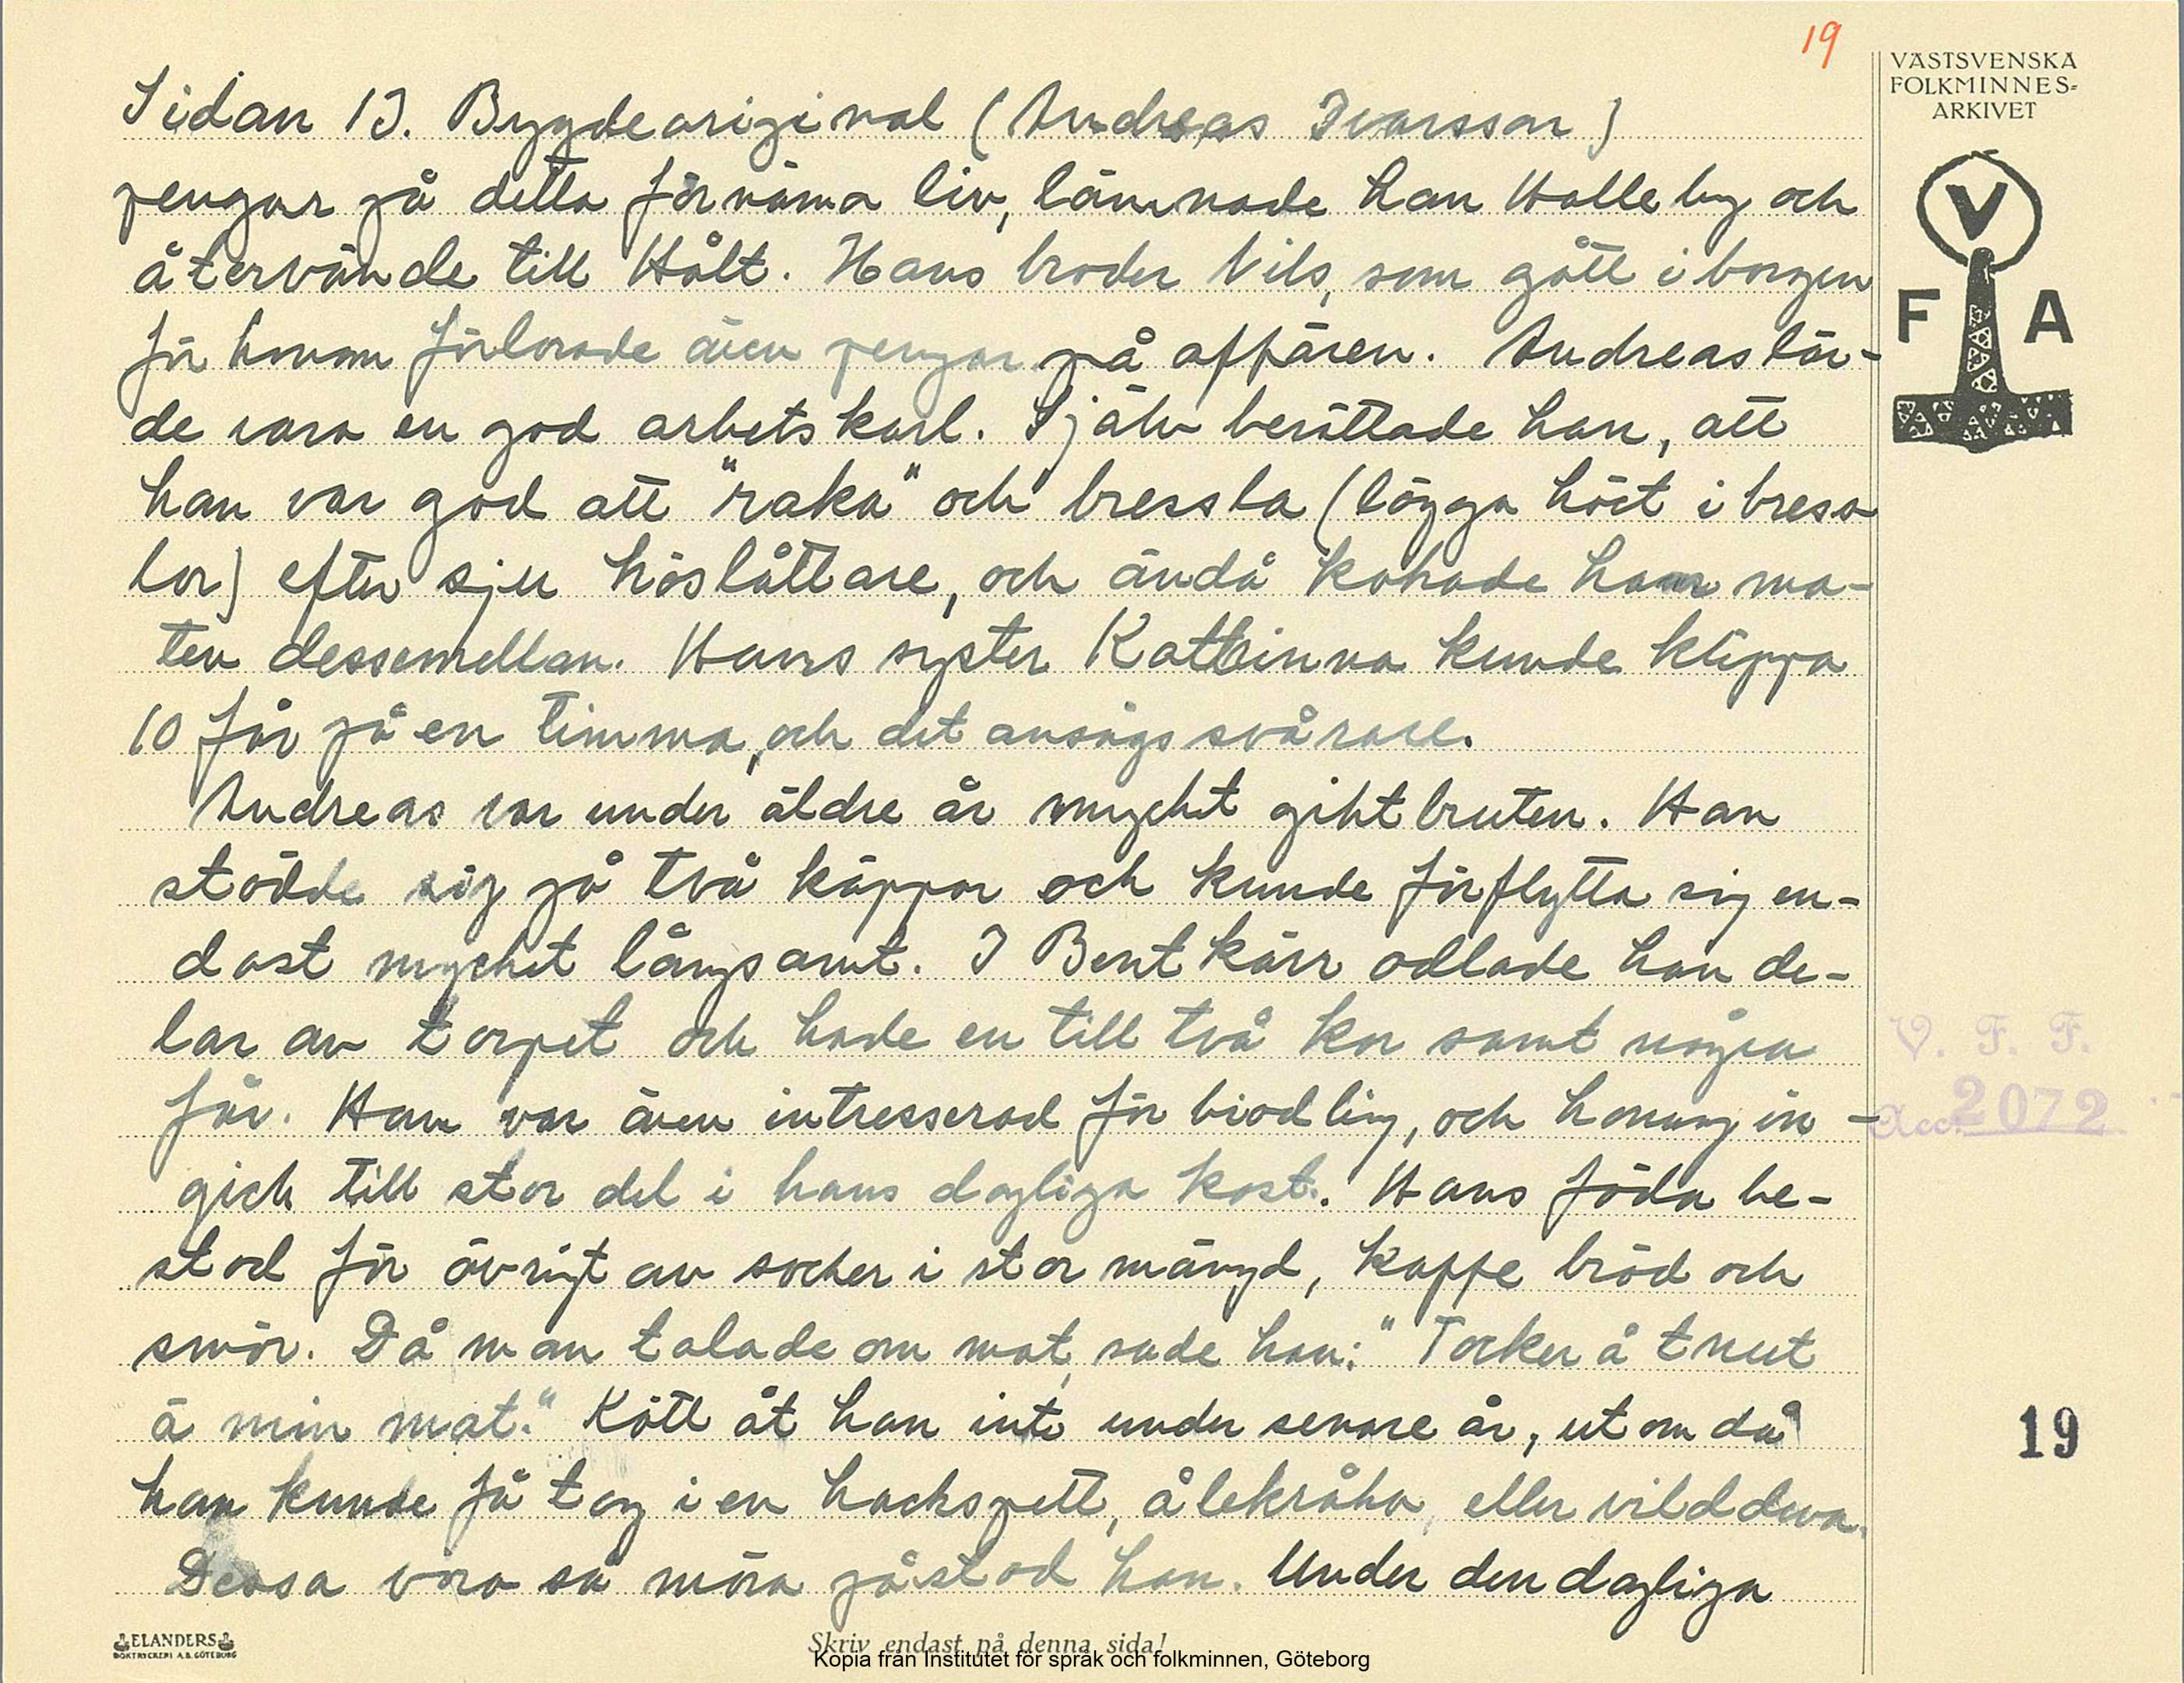 19
VÄSTSVENSKA
FOLKMINNES-
ARKIVET
V
F A
Sidan 13. Bygdeoriginal (Andreas Ivarsson)
pengar på detta förnäma liv, lämnade han Halleby och
återvände till Hålt. Hans broder Nils, som gått i borgen
för honom förlorade även pengar på affären. Andreas lär-
de vara en god arbetskarl. Själv berättade han, att
han var god att "raka" och bressla (lägga höet i bress-
lor) efter sju höslåttare, och ändå kokade han ma-
ten dessemellan. Hans syster Kattrinna kunde klippa
10 får på en timma, och det ansågs svårare.
Andreas var under äldre år mycket giktbruten. Han
stödde sig på två käppar och kunde förflytta sig en-
dast mycket långsamt. I Bentkärr odlade han de-
lar av torpet och hade en till två kor samt några
får. Han var även intresserad för biodling, och honung in-
gick till stor del i hans dagliga kost. Hans föda be-
stod för övrigt av socker i stor mängd, kaffe bröd och
smör. Då man talade om mat, sade han: "Tocker å tnut
ä min mat." Kött åt han inte under senare år, utom då
han kunde få tag i en hackspett, ålekråka, eller vildduva.
Dessa voro så möra påstod han. Under den dagliga
V. F. F.
Acc. 2072
19
ELANDERS
BOKTRYCKERI A.B. GÖTEBORG
Skriv endast på denna sida!
Kopia från Institutet för språk och folkminnen, Göteborg